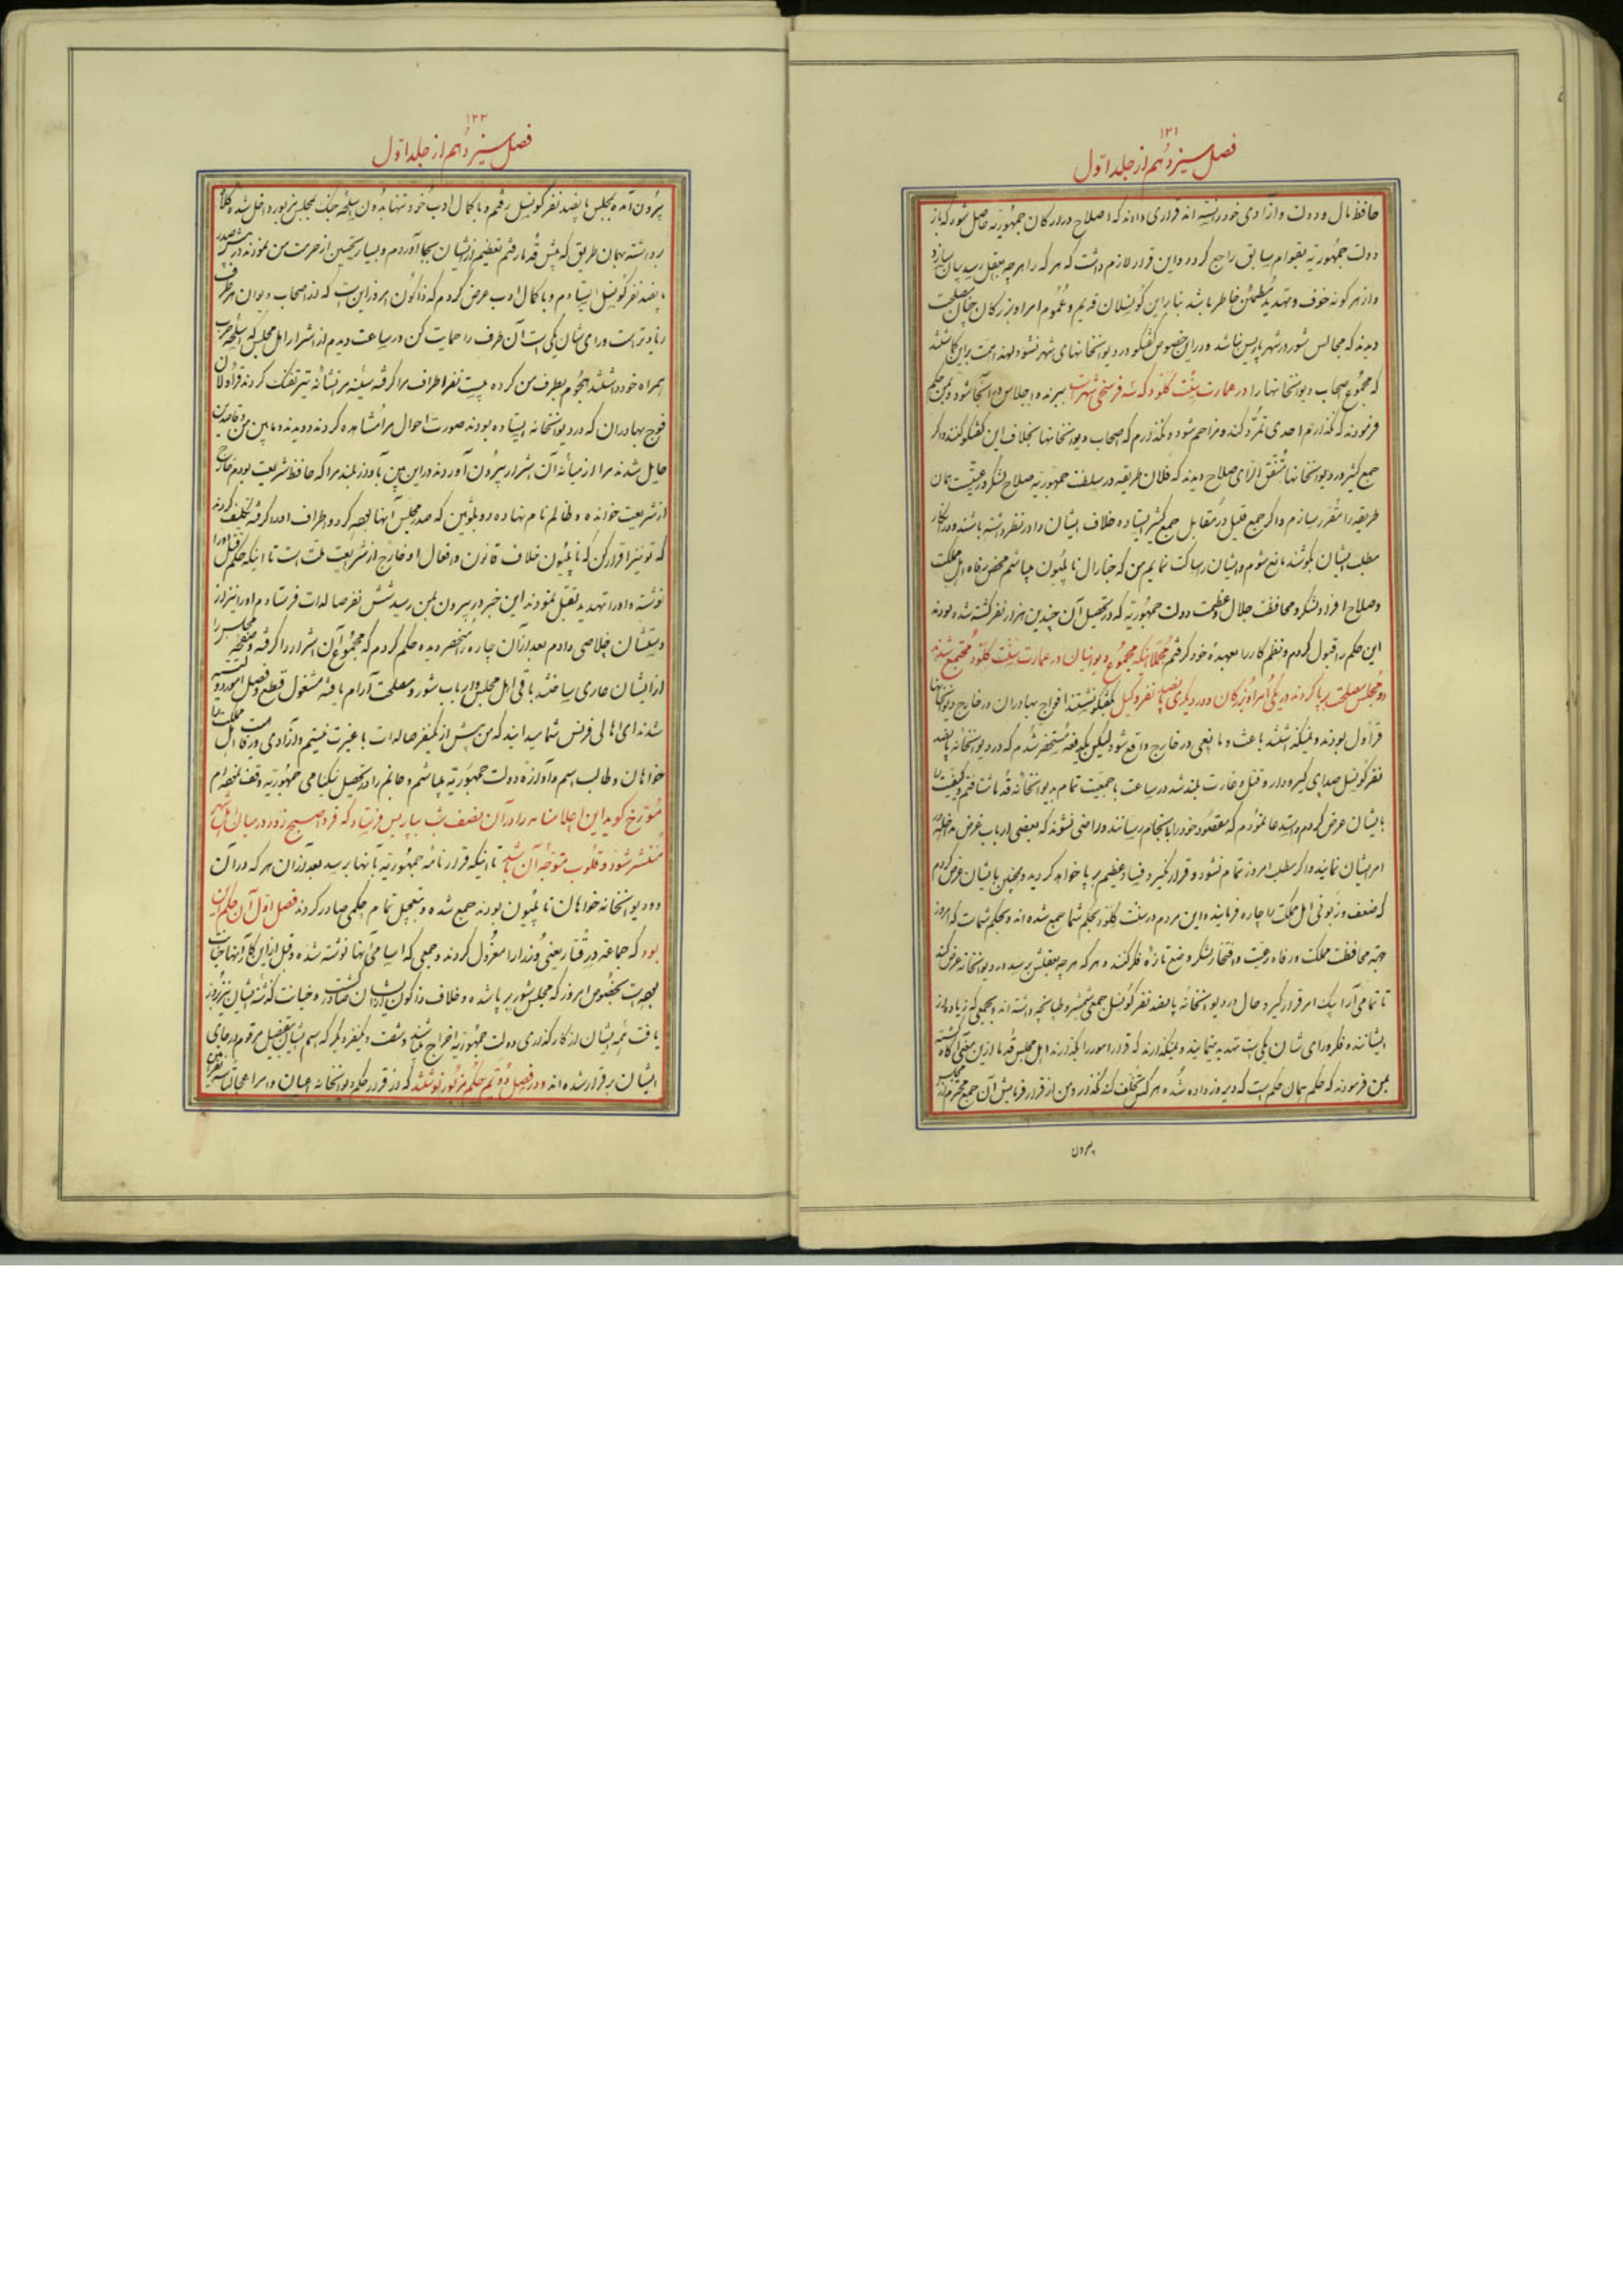 ۱۲۱
فصل سیزدهم از جلد اول
حافظ مال و دولت و آزادی خود دانسته اند قراری دادند که اصلاح در ارکان جمهوریه حاصل شود که باز
دولت جمهوریه بقوام سابق راجع گردد و این قرار لازم داشت که هر که را هر چه بعقل رسد بیان سازد
و از هر گونه خوف و تهدید مطمئن خاطر باشد بنابراین کونسلان قدیم و عموم امرا و بزرگان چنان مصلحت
دیدند که مجالس شور در شهر پاریس نباشد و در این خصوص گفتگو در دیوانخانهای شهر نشود لهذا همت براین گماشتند
که مجموع اصحاب دیوانخانها را در عمارت سنت کلود که سه فرسخی شهر است ببرند و اجلاس در آنجا شود و بمن حکم
فرمودند که نگذارم احدی تمرد کند و مزاحم شود و نگذارم که اصحاب دیوانخانها بخلاف این گفتگو کنند و اگر
جمع کثیر در دیوانخانها متفق الرای صلاح دیدند که فلان طریقه در سلطنت جمهوریه صلاح لشکر و رعیت است همان
طریقه را مقرر سازم و اگر جمع قلیل در مقابل جمع کثیر ایستاده خلاف ایشان را در نظر داشته باشند و در انکار
مطلب ایشان بکوشند مانع شوم و ایشان را ساکت نمایم من که جنرال ناپلیون میباشم محض رفاه اهل مملکت
و صلاح افراد لشکر و محافظت جلال و عظمت دولت جمهوریه که در تحصیل آن چندین هزار نفر کشته شده بودند
این حکم را قبول کردم و نظم کار را بعهده خود گرفتم مجملا اینکه مجموع دیوانیان در عمارت سنت کلود مجتمع شدند
دو مجلس مصلحت برپا کردند در یکی امرا و بزرگان و در دیگری پانصد نفر وکیل بگفتگو نشستند افواج بهادران در خارج دیوانخانها
قراول بودند و نمیگذاشتند باعث و مانعی در خارج واقع شود لیکن یکدفعه مستحضر شدم که در دیوانخانه پانصد
نفر کونسل صدای گیر و دار و قتل و غارت بلند شد در ساعت با جمعیت تمام بدیوانخانه قدما شتافتم و کیفیت را
بایشان عرض کردم و استدعا نمودم که مقصود خود را بانجام رسانند و راضی نشوند که بعضی ارباب غرض مداخله در
امر ایشان نمایند و اگر مطلب امروز تمام نشود و قرار نگیرد فساد عظیم برپا خواهد گردید و همچنین بایشان عرض کردم
که ضعف و زبونی اهل مملکت را چاره فرمایند و این مردم در سنت کلود بحکم شما جمع شده اند و بحکم شماست که امروز
جهة محافظت مملکت و رفاه رعیت و افتخار لشکر وضع تازه فکر کنند و هر که هر چه بعقلش برسد در دیوانخانه عرض کند
تا تمامی آرا بیک امر قرار گیرد حال در دیوانخانه پانصد نفر کونسل جمعی شمشیر و طپانچه داشته اند و جمعی که زیاده از
ایشانند و فکر و رای شان یکی است تهدید مینمایند و نمیگذارند که قرار امور را بگذارند اهل مجلس قدما ازین معنی آگاه گشته
بمن فرمودند که حکم همان حکم است که دیروز داده شده هر کس تخلف کند نگذار و من از قرار فرمایش آن جمع محترم از مجلس
بیرون
۱۲۲
فصل سیزدهم از جلد اول
بیرون آمده بمجلس پانصد نفر کونسل رفتم و با کمال ادب خود تنها بدون اسلحه جنگ بمجلس مزبور داخل شده کلاه
برداشته بهمان طریق که پیش قدما رفتم تعظیم ایشان بجا آوردم و بسیار تحسین از حرمت من نمودند در پیش صدر
پانصد نفر کونسل ایستادم و با کمال ادب عرض کردم که ذاکون امروز این است که از اصحاب دیوان هر طرف
زیادتر است و رای شان یکی است آن طرف را حمایت کن در ساعت دیدم از اشرار اهل مجلس که اسلحه حرب
همراه خود داشتند هجوم بطرف من کرده بیست نفر اطراف مرا گرفته سینه مرا نشانه تیر تفنگ کردند قراولان
فوج بهادران که در دیوانخانه ایستاده بودند صورت احوال مرا مشاهده کردند دویدند و مابین من و قاصدین
حایل شدند مرا از میانه آن اشرار بیرون آوردند در این بین بآواز بلند مرا که حافظ شریعت بودم خارج
از شریعت خوانده و ظالم نام نهاده رو بلوئین که صدر مجلس آنها بود کرده و اطراف او را گرفته تکلیف کردند
که تو نیز اقرار کن که ناپلیون خلاف قانون و افعال او خارج از شریعت ملت است تا اینکه حکم قتل او را
نوشته و او را تهدید بقتل نمودند این خبر در بیرون بمن رسید شش نفر صالدات فرستادم او را نیز از
دستشان خلاصی دادم بعد از آن چاره را منحصر دیده حکم کردم که مجموع آن اشرار را گرفته و صفحه مجلس را
از ایشان عاری ساختند باقی اهل مجلس و ارباب شور و مصلحت آرام یافته مشغول قطع و فصل امور دولتی
شدند ای اهالی فرنس شما میدانید که من پیش از یکنفر صالدات با غیرت نیستم و آزادی و رفاه اهل مملکت را
خواهان و طالب اسم و آوازه دولت جمهوریه میباشم و جانم را در تحصیل نیکنامی جمهوریه وقف نموده ام
مورخ گوید این اعلامنامه را در آن نصف شب بپاریس فرستاد که فردا صبح زود در میان اهل شهر
منتشر شود و قلوب متوجه آن باشد تا اینکه قرار نامه جمهوریه بآنها برسد بعد از آن هر که در آن
دو دیوانخانه خواهان ناپلیون بودند جمع شده و بتعجیل تمام حکمی صادر کردند فصل اول آن حکم این
بود که جماعه درقتار یعنی وزرا را معزول کردند و جمعی که اسامی آنها نوشته شده و قبل از این کار آنها خیانت
بوده است بخصوص امروز که مجلس شور برپا شده و خلاف ذاکون ایشان صادر گشت و خیانت گذشته ایشان نیز بروز
یافت همه ایشان از کار گذاری دولت جمهوریه اخراج باشند و شصت و یکنفر دیگر که اسم ایشان بتفصیل مرقوم در جای
ایشان برقرار شده اند و در فصل دویم حکم مزبور نوشتند که از قرار حکم دیوانخانه اعیان و امرا عجالتا سه نفر